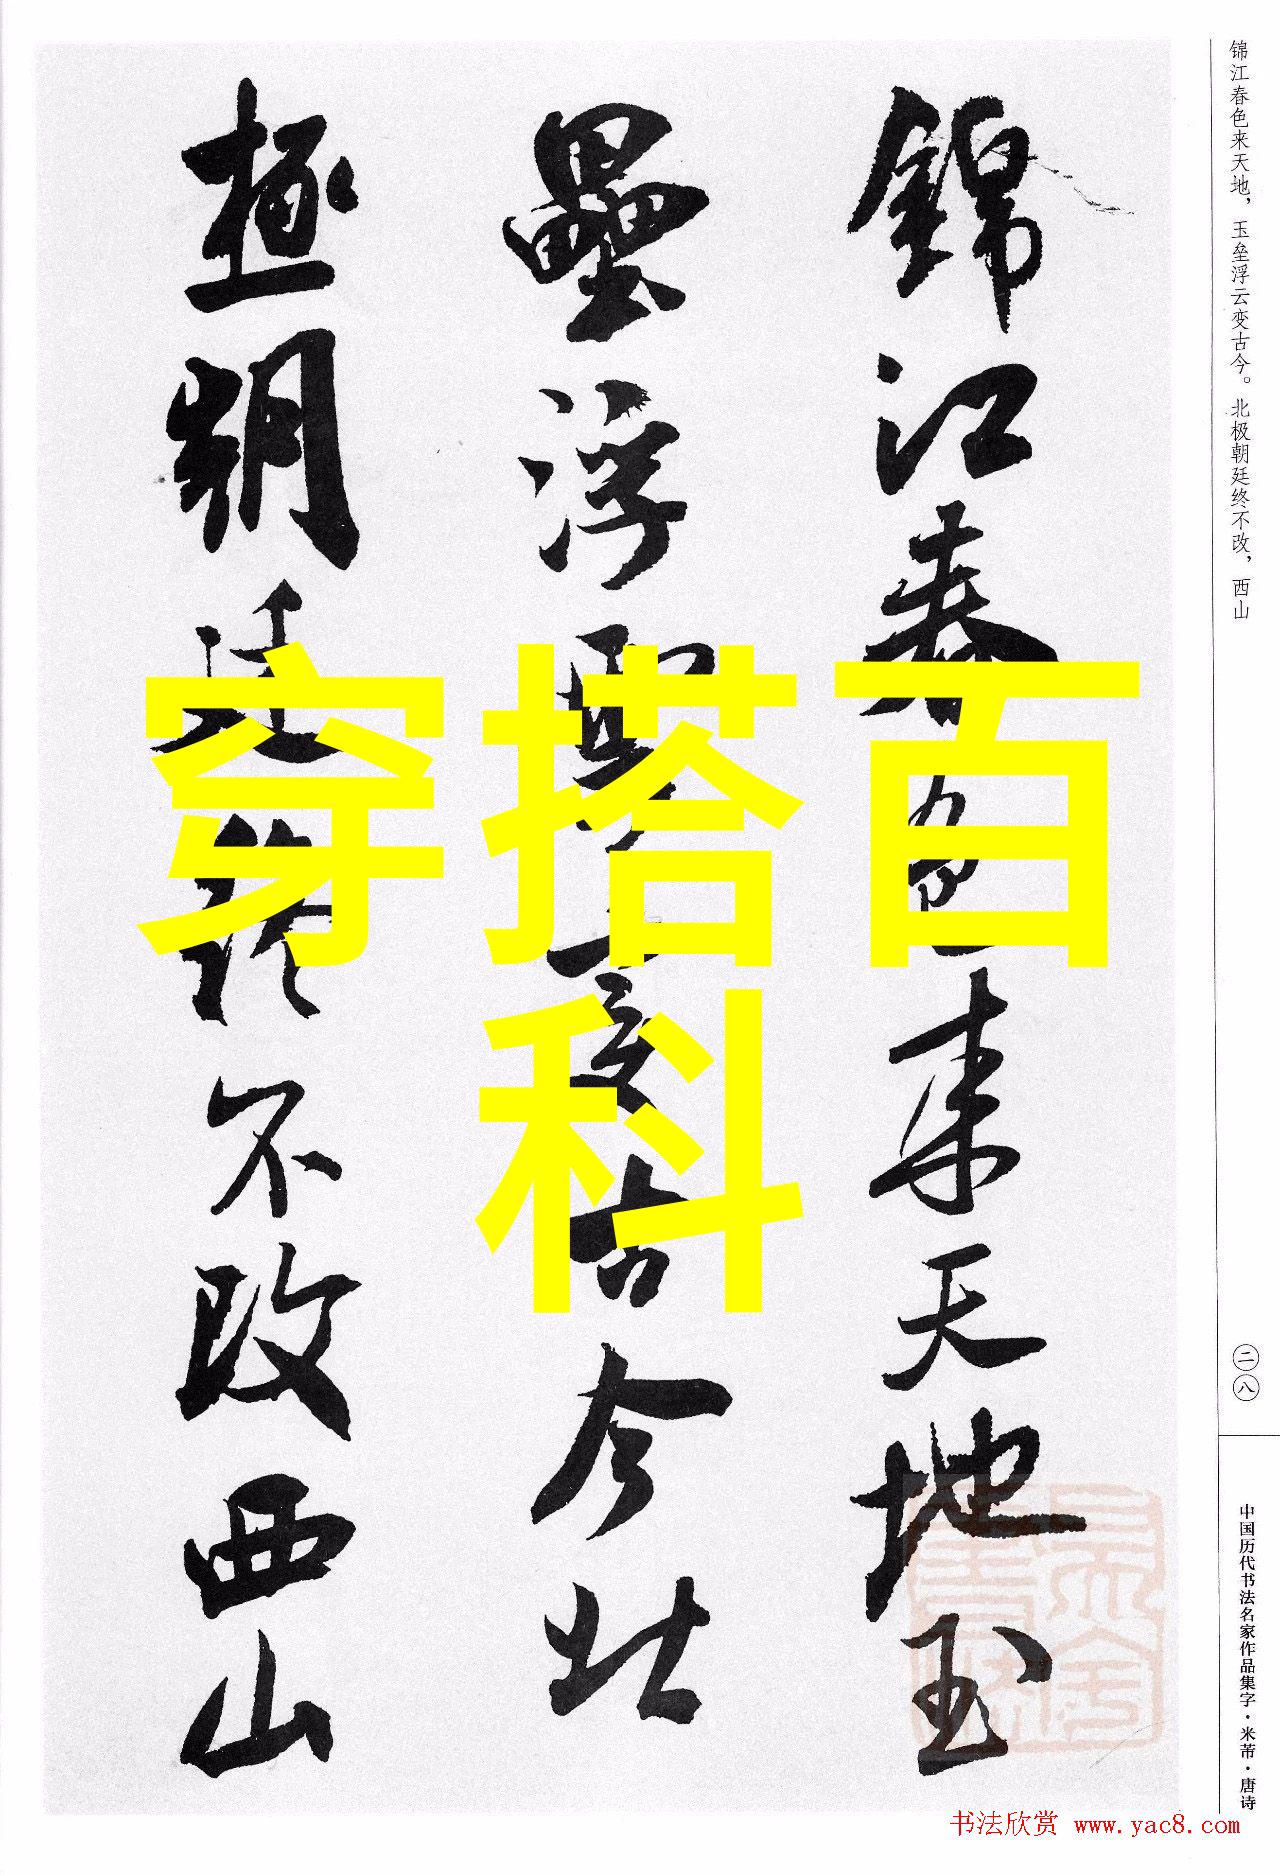 锦江春色来天地，玉垒浮云变古今。北极朝廷终不改，西山
錦江春色来天地玉
壘浮雲变古今北
極朝廷終不改西山
穿搭百
科
二八
中国历代书法名家作品集字·米芾·唐诗
书法欣赏 www.yac8.com